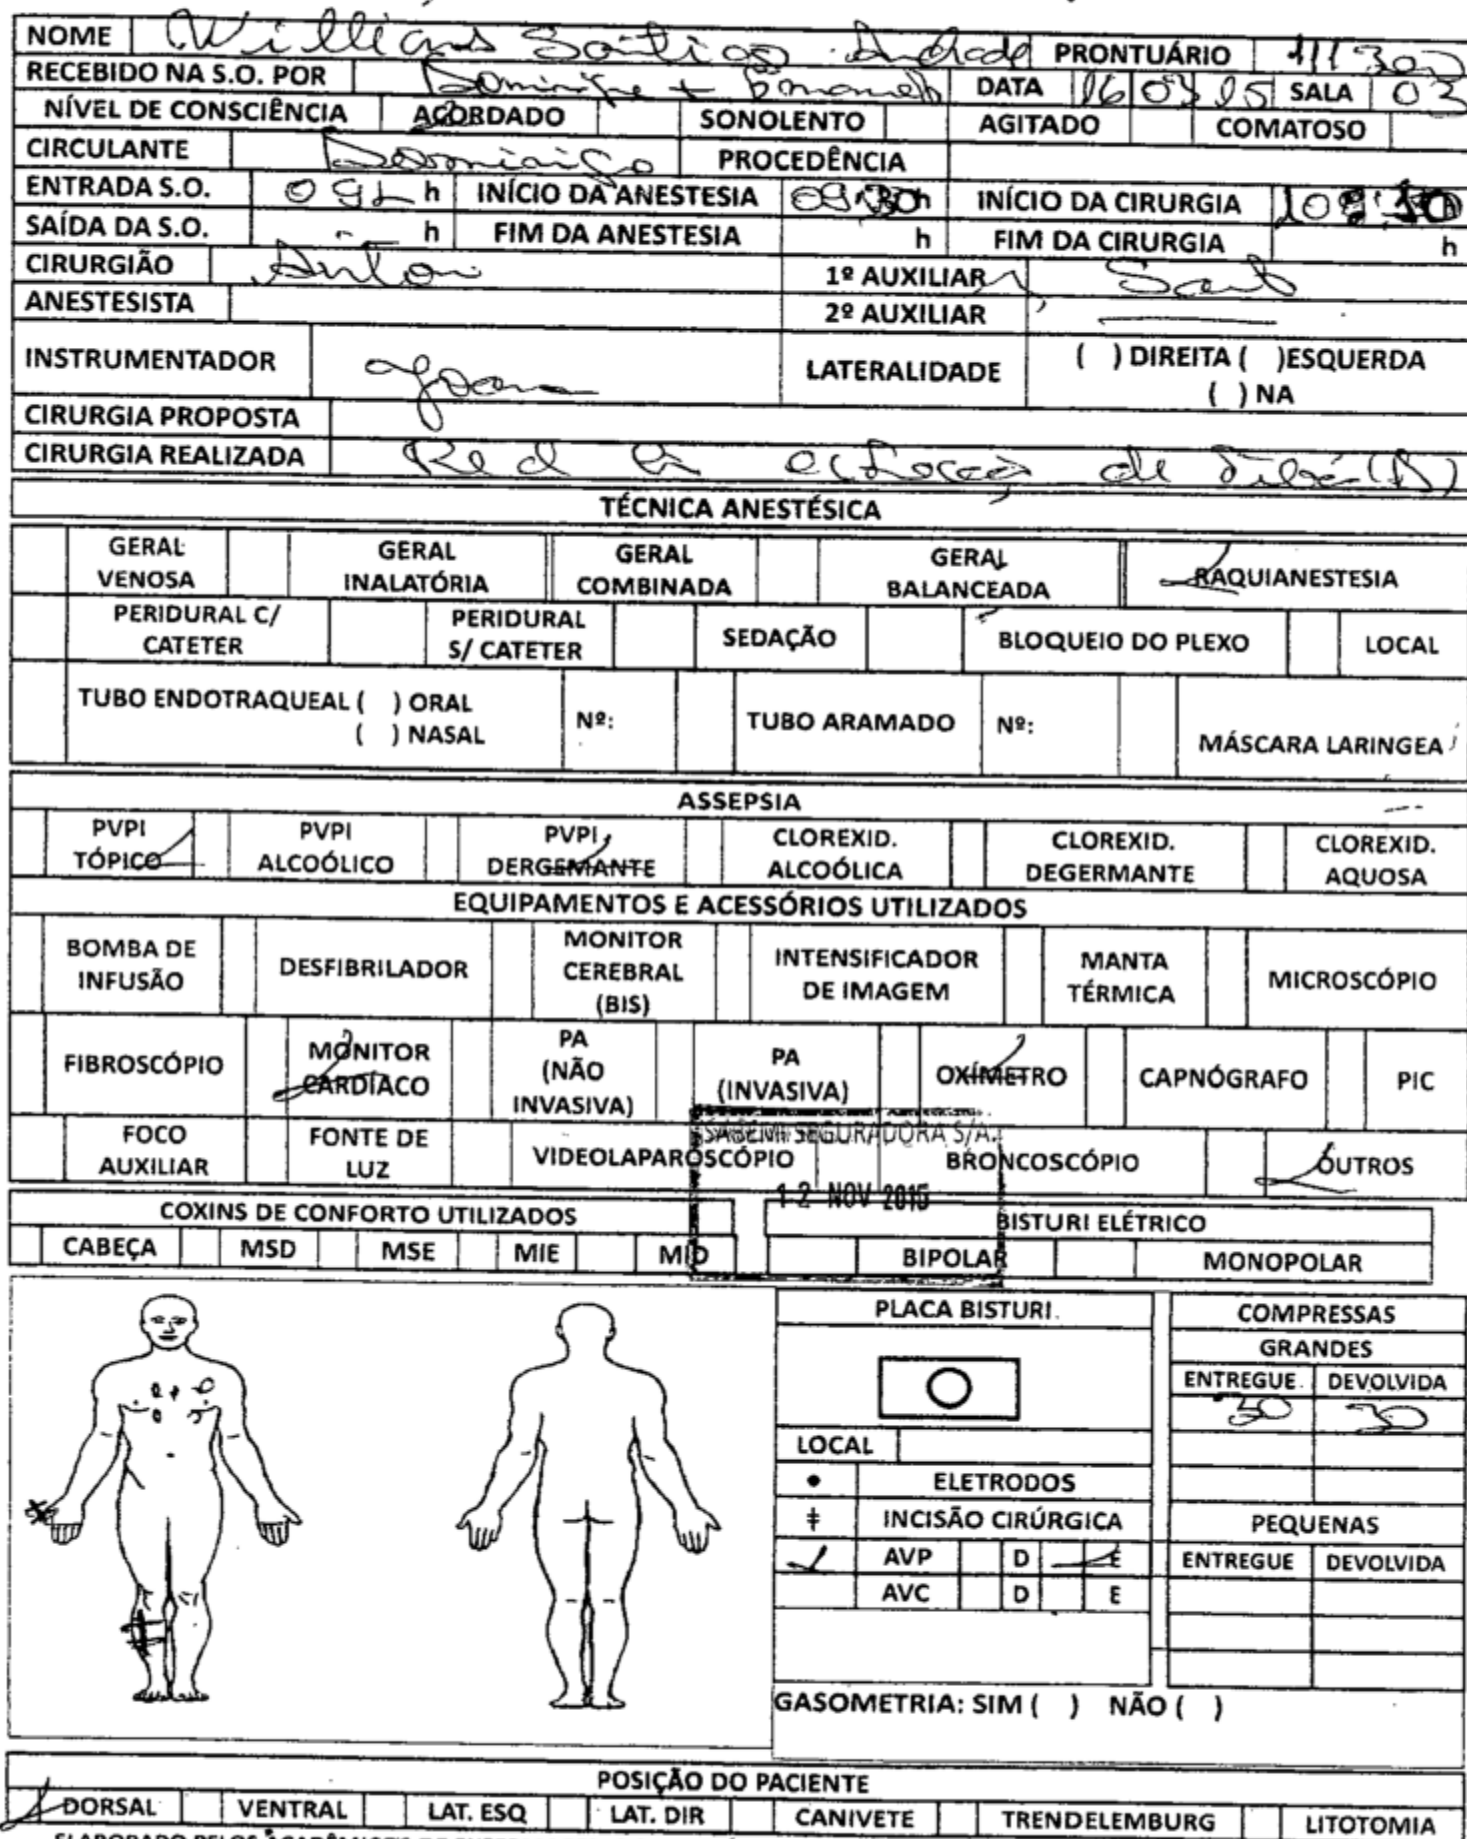 NOME Willians Santiago Andrade PRONTUÁRIO
RECEBIDO NA S.O. POR DATA 16 03 15 SALA 03
NÍVEL DE CONSCIÊNCIA ACORDADO SONOLENTO AGITADO COMATOSO
CIRCULANTE PROCEDÊNCIA
ENTRADA S.O. 09 h INÍCIO DA ANESTESIA 09:30 h INÍCIO DA CIRURGIA h
SAÍDA DA S.O. h FIM DA ANESTESIA h FIM DA CIRURGIA h
CIRURGIÃO 1º AUXILIAR
ANESTESISTA 2º AUXILIAR
INSTRUMENTADOR LATERALIDADE ( ) DIREITA ( )ESQUERDA
( ) NA
CIRURGIA PROPOSTA
CIRURGIA REALIZADA Red de
TÉCNICA ANESTÉSICA
GERAL VENOSA GERAL INALATÓRIA GERAL COMBINADA GERAL BALANCEADA RAQUIANESTESIA
PERIDURAL C/ CATETER PERIDURAL S/ CATETER SEDAÇÃO BLOQUEIO DO PLEXO LOCAL
TUBO ENDOTRAQUEAL ( ) ORAL
( ) NASAL Nº: TUBO ARAMADO Nº: MÁSCARA LARINGEA
ASSEPSIA
PVPI TÓPICO PVPI ALCOÓLICO PVPI DERGEMANTE CLOREXID. ALCOÓLICA CLOREXID. DEGERMANTE CLOREXID. AQUOSA
EQUIPAMENTOS E ACESSÓRIOS UTILIZADOS
BOMBA DE INFUSÃO DESFIBRILADOR MONITOR CEREBRAL (BIS) INTENSIFICADOR DE IMAGEM MANTA TÉRMICA MICROSCÓPIO
FIBROSCÓPIO MONITOR CARDÍACO PA (NÃO INVASIVA) PA (INVASIVA) OXÍMETRO CAPNÓGRAFO PIC
SABEMI SEGURADORA S/A.
FOCO AUXILIAR FONTE DE LUZ VIDEOLAPAROSCÓPIO BRONCOSCÓPIO OUTROS
12 NOV 2015
COXINS DE CONFORTO UTILIZADOS BISTURI ELÉTRICO
CABEÇA MSD MSE MIE MID BIPOLAR MONOPOLAR
PLACA BISTURI. COMPRESSAS
GRANDES
ENTREGUE. DEVOLVIDA
30 30
LOCAL
ELETRODOS
INCISÃO CIRÚRGICA PEQUENAS
AVP D E ENTREGUE DEVOLVIDA
AVC D E
GASOMETRIA: SIM ( ) NÃO ( )
POSIÇÃO DO PACIENTE
DORSAL VENTRAL LAT. ESQ LAT. DIR CANIVETE TRENDELEMBURG LITOTOMIA
ELABORADO PELOS ACADÊMICOS DE